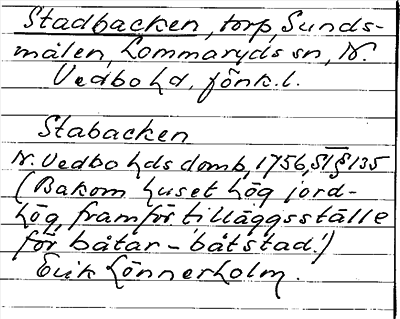 Stadbacken, torp, Sunds-
målen, Lommaryds sn, N.
Vedbo hd, Jönk. l.
Stabacken
N. Vedbo hds domb, 1756, ST § 135
(Bakom huset hög jord-
hög, framför tilläggsställe
för båtar – båtstad!)
Erik Lönnerholm.